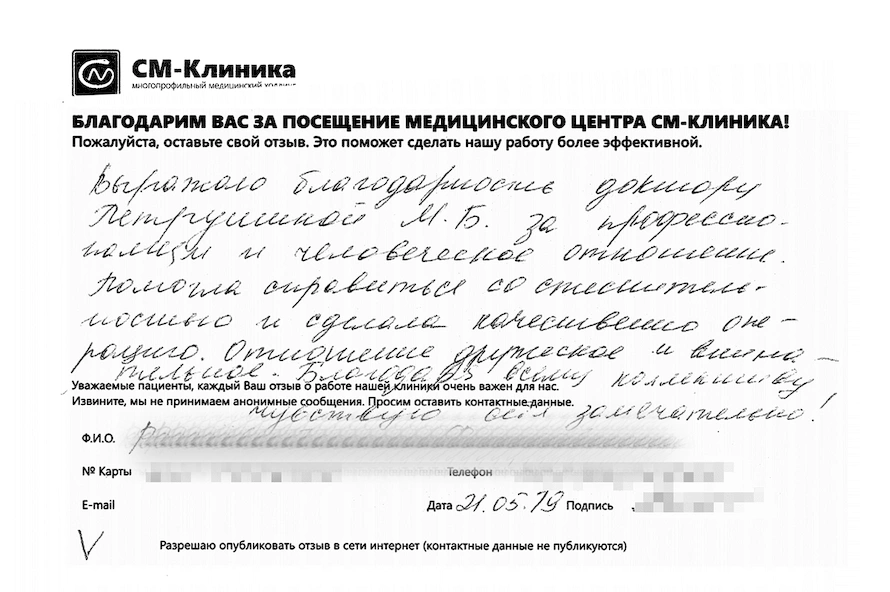 СМ-Клиника
многопрофильный медицинский холдинг
БЛАГОДАРИМ ВАС ЗА ПОСЕЩЕНИЕ МЕДИЦИНСКОГО ЦЕНТРА СМ-КЛИНИКА!
Пожалуйста, оставьте свой отзыв. Это поможет сделать нашу работу более эффективной.
Выражаю благодарность доктору
Петрушиной М.Б. за профессио-
нализм и человеческое отношение.
Помогла справиться со стеснитель-
ностью и сделала качественно опе-
рацию. Отношение дружеское и внима-
тельное. Благодаря всему коллективу
Уважаемые пациенты, каждый Ваш отзыв о работе нашей клиники очень важен для нас.
Извините, мы не принимаем анонимные сообщения. Просим оставить контактные данные.
чувствую себя замечательно!
Ф.И.О.
№ Карты Телефон
E-mail Дата 21.05.19 Подпись
V Разрешаю опубликовать отзыв в сети интернет (контактные данные не публикуются)